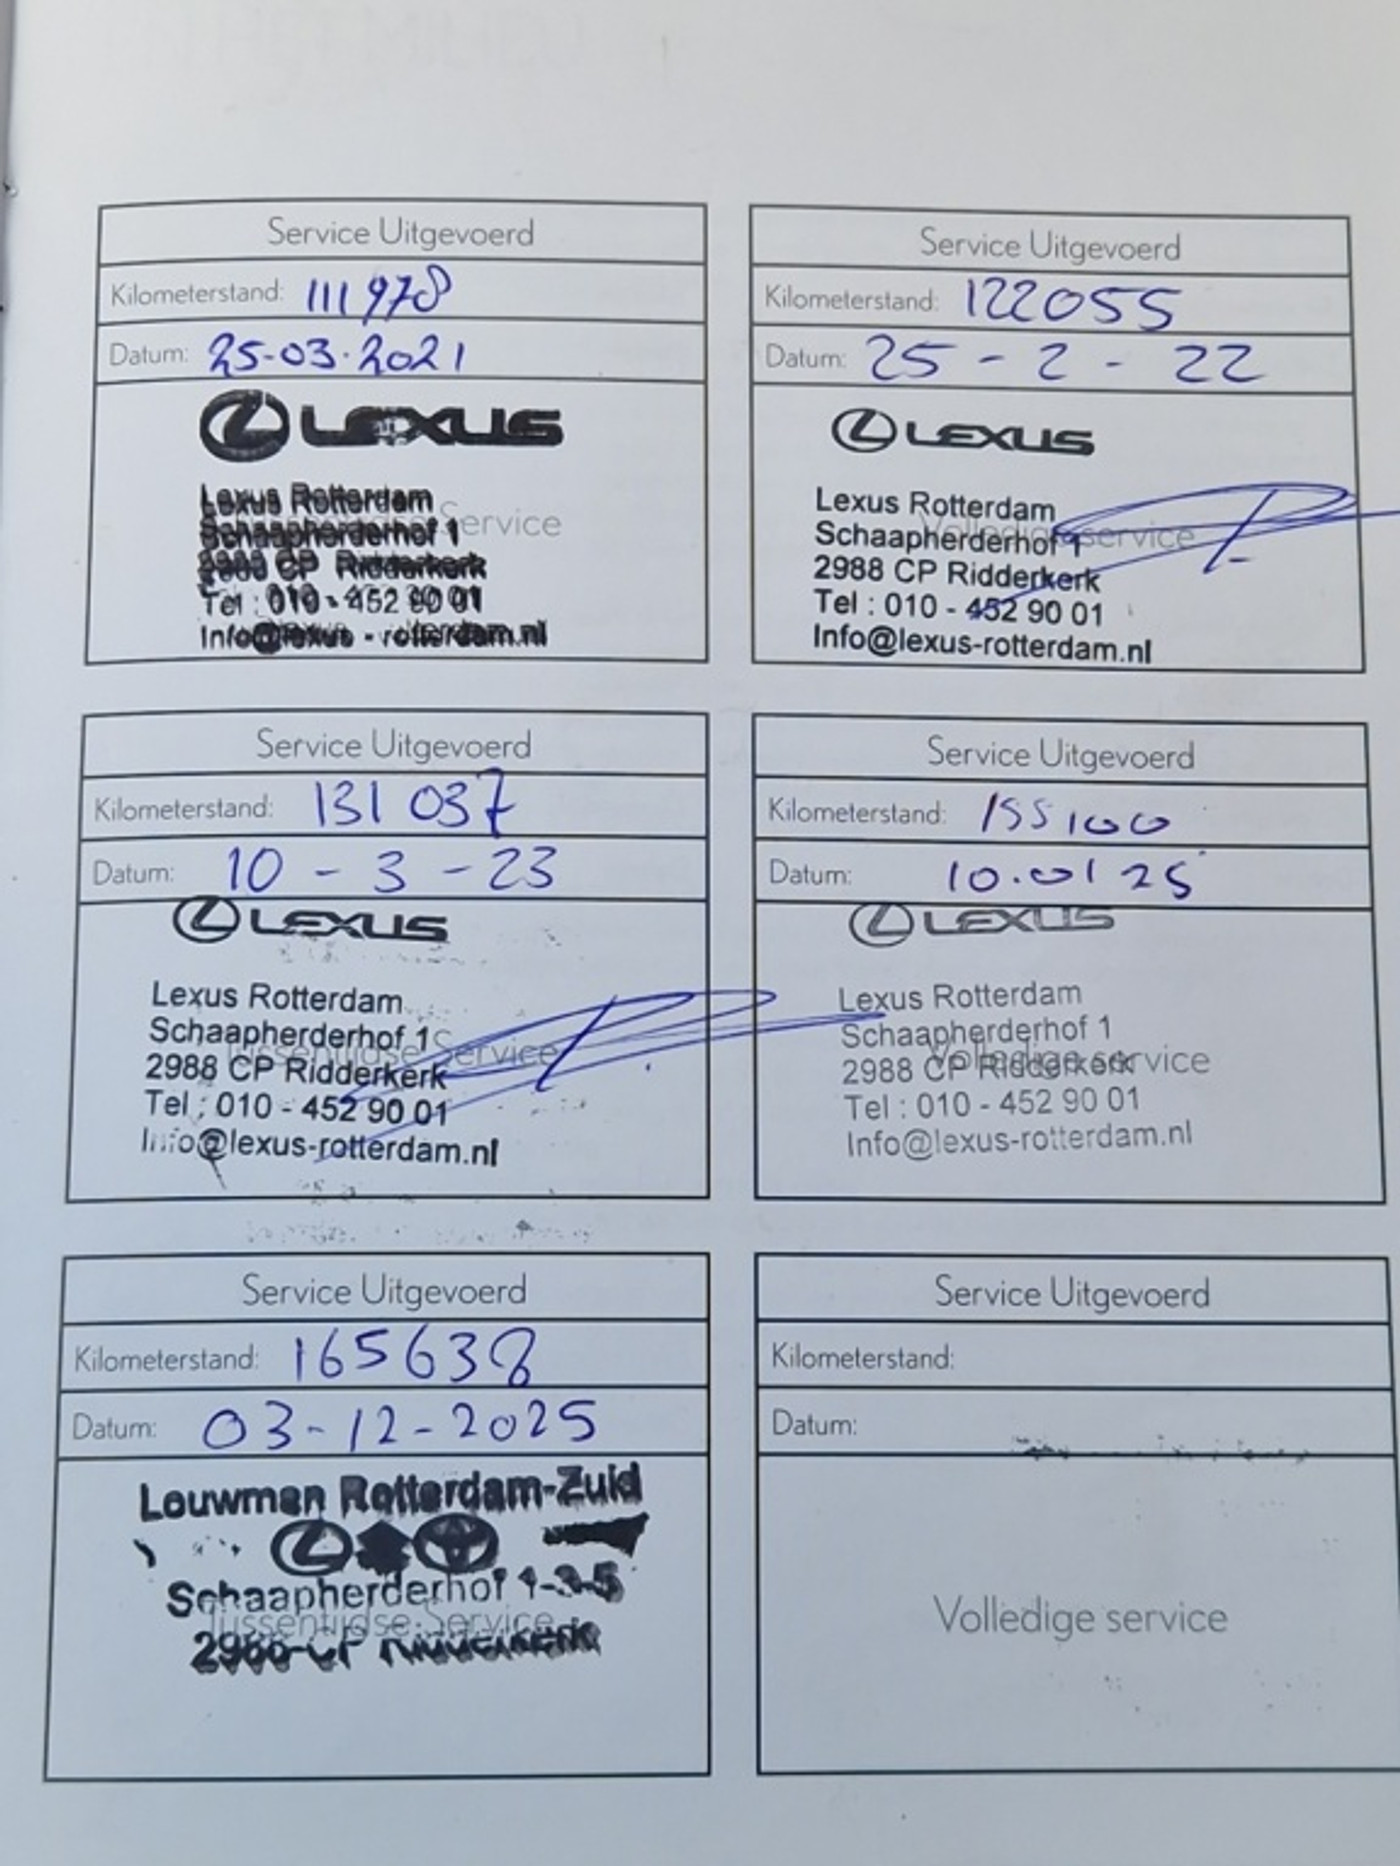 Service Uitgevoerd
Kilometerstand: 111978
Datum: 25-03-2021
LEXUS
Lexus Rotterdam
Schaapherderhof 1
Service
2988 CP Ridderkerk
Tel : 010 - 452 90 01
Info@lexus-rotterdam.nl
Service Uitgevoerd
Kilometerstand: 122055
Datum: 25 - 2 - 22
LEXUS
Lexus Rotterdam
Schaapherderhof 1
Volledige service
2988 CP Ridderkerk
Tel : 010 - 452 90 01
Info@lexus-rotterdam.nl
Service Uitgevoerd
Kilometerstand: 131 037
Datum: 10 - 3 - 23
LEXUS
Lexus Rotterdam
Schaapherderhof 1
Tussentijdse Service
2988 CP Ridderkerk
Tel : 010 - 452 90 01
Info@lexus-rotterdam.nl
Service Uitgevoerd
Kilometerstand: 155100
Datum: 10.01 25
LEXUS
Lexus Rotterdam
Schaapherderhof 1
Volledige service
2988 CP Ridderkerk
Tel : 010 - 452 90 01
Info@lexus-rotterdam.nl
Service Uitgevoerd
Kilometerstand: 165638
Datum: 03-12-2025
Louwman Rotterdam-Zuid
Schaapherderhof 1-3-5
Tussentijdse Service
2988 CP Ridderkerk
Service Uitgevoerd
Kilometerstand:
Datum:
Volledige service